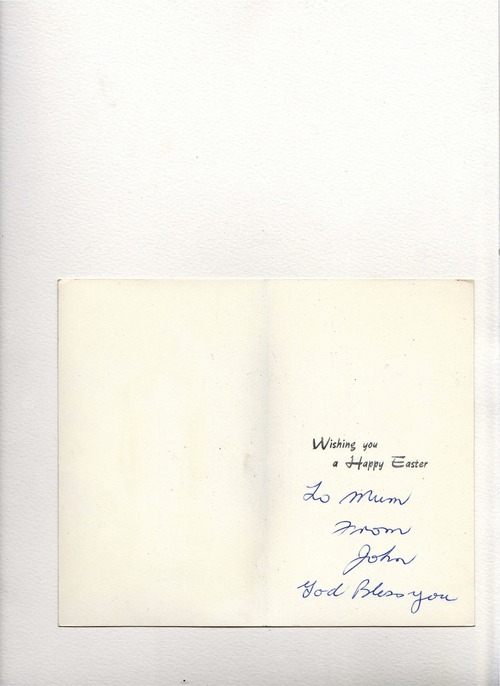 Wishing you
a Happy Easter
To Mum
From
John
God Bless you